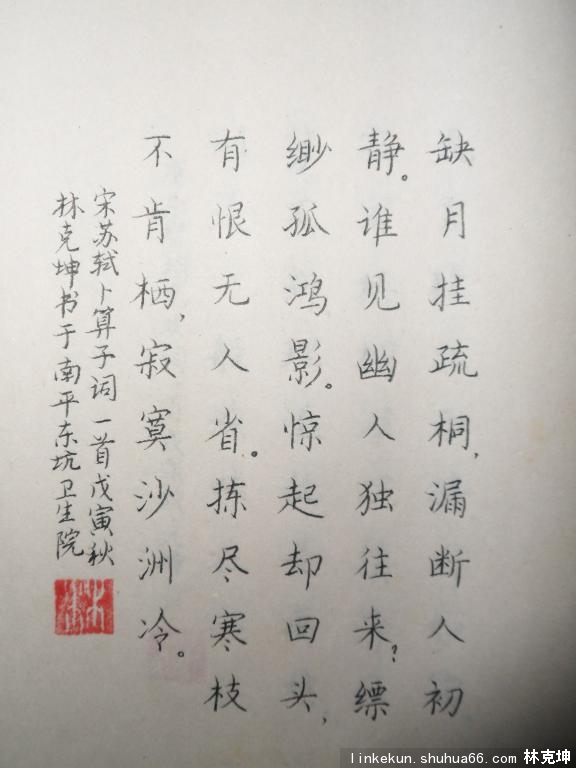 缺月挂疏桐，漏断人初
静。谁见幽人独往来？缥
缈孤鸿影。惊起却回头，
有恨无人省。拣尽寒枝
不肯栖，寂寞沙洲冷。
宋苏轼卜算子词一首戊寅秋
林克坤书于南平东坑卫生院
linkekun.shuhua66.com 林克坤